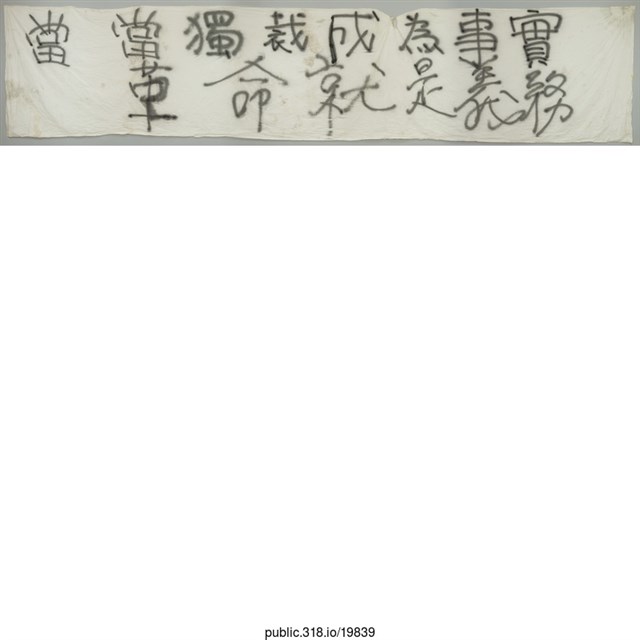 當當獨裁成為事實
革命就是義務
public.318.io/19839